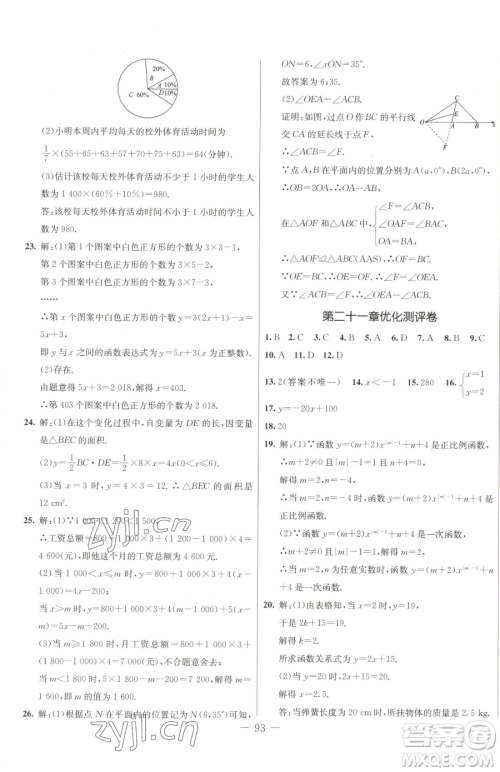 20%
B
A 10%
D 10%
C 60%
(2)小明本周内平均每天的校外体育活动时间为
1/7×(55+65+63+57+70+75+63)=64(分钟).
(3)估计该校每天校外体育活动不少于 1 小时的学生人数约 1 400×(60%+10%)=980.
答:该校每天校外体育活动不少于 1 小时的学生人数约为 980.
23. 解:(1)第 1 个图案中白色正方形的个数为 3×3-1,
第 2 个图案中白色正方形的个数为 3×5-2,
第 3 个图案中白色正方形的个数为 3×7-3,
……
∴第 x 个图案中白色正方形的个数为 y=3(2x+1)-x=5x+3,
即 y 与 x 之间的函数表达式为 y=5x+3(x 为正整数).
(2)存在.
由题意得 5x+3=2 018,
解得 x=403.
∴第 403 个图案中白色正方形的个数为 2 018.
24. 解:(1)在这个变化过程中,自变量为 DE 的长,因变量是 △BEC 的面积.
(2)y=1/2 BC·DE=1/2×8×x=4x(0≤x≤6).
(3)当 x=3 时,y=4×3=12,故 △BEC 的面积为 12 cm².
25. 解:(1)∵1 000<1 200<1 500,
∴工资总额=800+1 000×3+(1 200-1 000)×4=4 600(元),即他这个月的工资总额为 4 600 元.
(2)当 1 000<x≤m 时,y=800+1 000×3+4(x-1 000)=4x-200,
当 x>m 时,y=800+1 000×3+4(m-1 000)+5(x-m)=5x-m-200.
(3)当 m=1 800 时,月工资总额=800+1 000×3+(1 800-1 000)×4=7 000(元),不合题意,舍去;
当 m<1 800 时,5×1 800-m-200=7 100,解得 m=1 700,
即 m 的值为 1 700.
26. 解:(1)根据点 N 在平面内的位置记为 N(6,35°)可知,
ON=6,∠XON=35°.
故答案为 6;35.
(2)∵∠OEA=∠OAE,
过点 O 作 BC 的平行线交 CA 的延长线于点 F,
∴∠ACB=∠F.
∵点 A,B 的位置分别为 A(a,0°),B(2a,0°),
∴OA=AB.
在 △AOF 和 △ABC 中,{∠F=∠ACB, ∠OAF=∠BAC, OA=AB,
∴△AOF≌△ABC(AAS),
C
E
O A B X
F
第二十一章优化测评卷
1. B 2. C 3. C 4. B 5. A 6. D 7. A 8. B 9. C
10. A 11. D 12. D
13. 2(答案不唯一) 14. x<-1 15. 280 16. {x=1 y=2
17. y=-20x+100
18. 20
19. 解:(1)∵函数 y=(m+2)x^(|m|-1)+n+4 是正比例函数,
∴m+2≠0 且 |m|-1=1,n+4=0,
解得 m=2,n=-4.
∴当 m=2,n=-4 时,函数 y=(m+2)x^(|m|-1)+n+4 是正比例函数.
(2)∵函数 y=(m+2)x^(|m|-1)+n+4 是一次函数,
∴m+2≠0 且 |m|-1=1,
解得 m=2.
20. 解:(1)由表格知,当 x=2 时,y=19,
故 2k+15=19.
解得 k=2.
所求函数关系式为 y=2x+15.
(2)当 y=20 时,2x+15=20.
解得 x=2.5.
答:当弹簧长度为 20 cm 时,所挂物体的质量是 2.5 kg.
— 93 —
zyjl.cn
zyjl.cn
答案圈
MXQE.COM